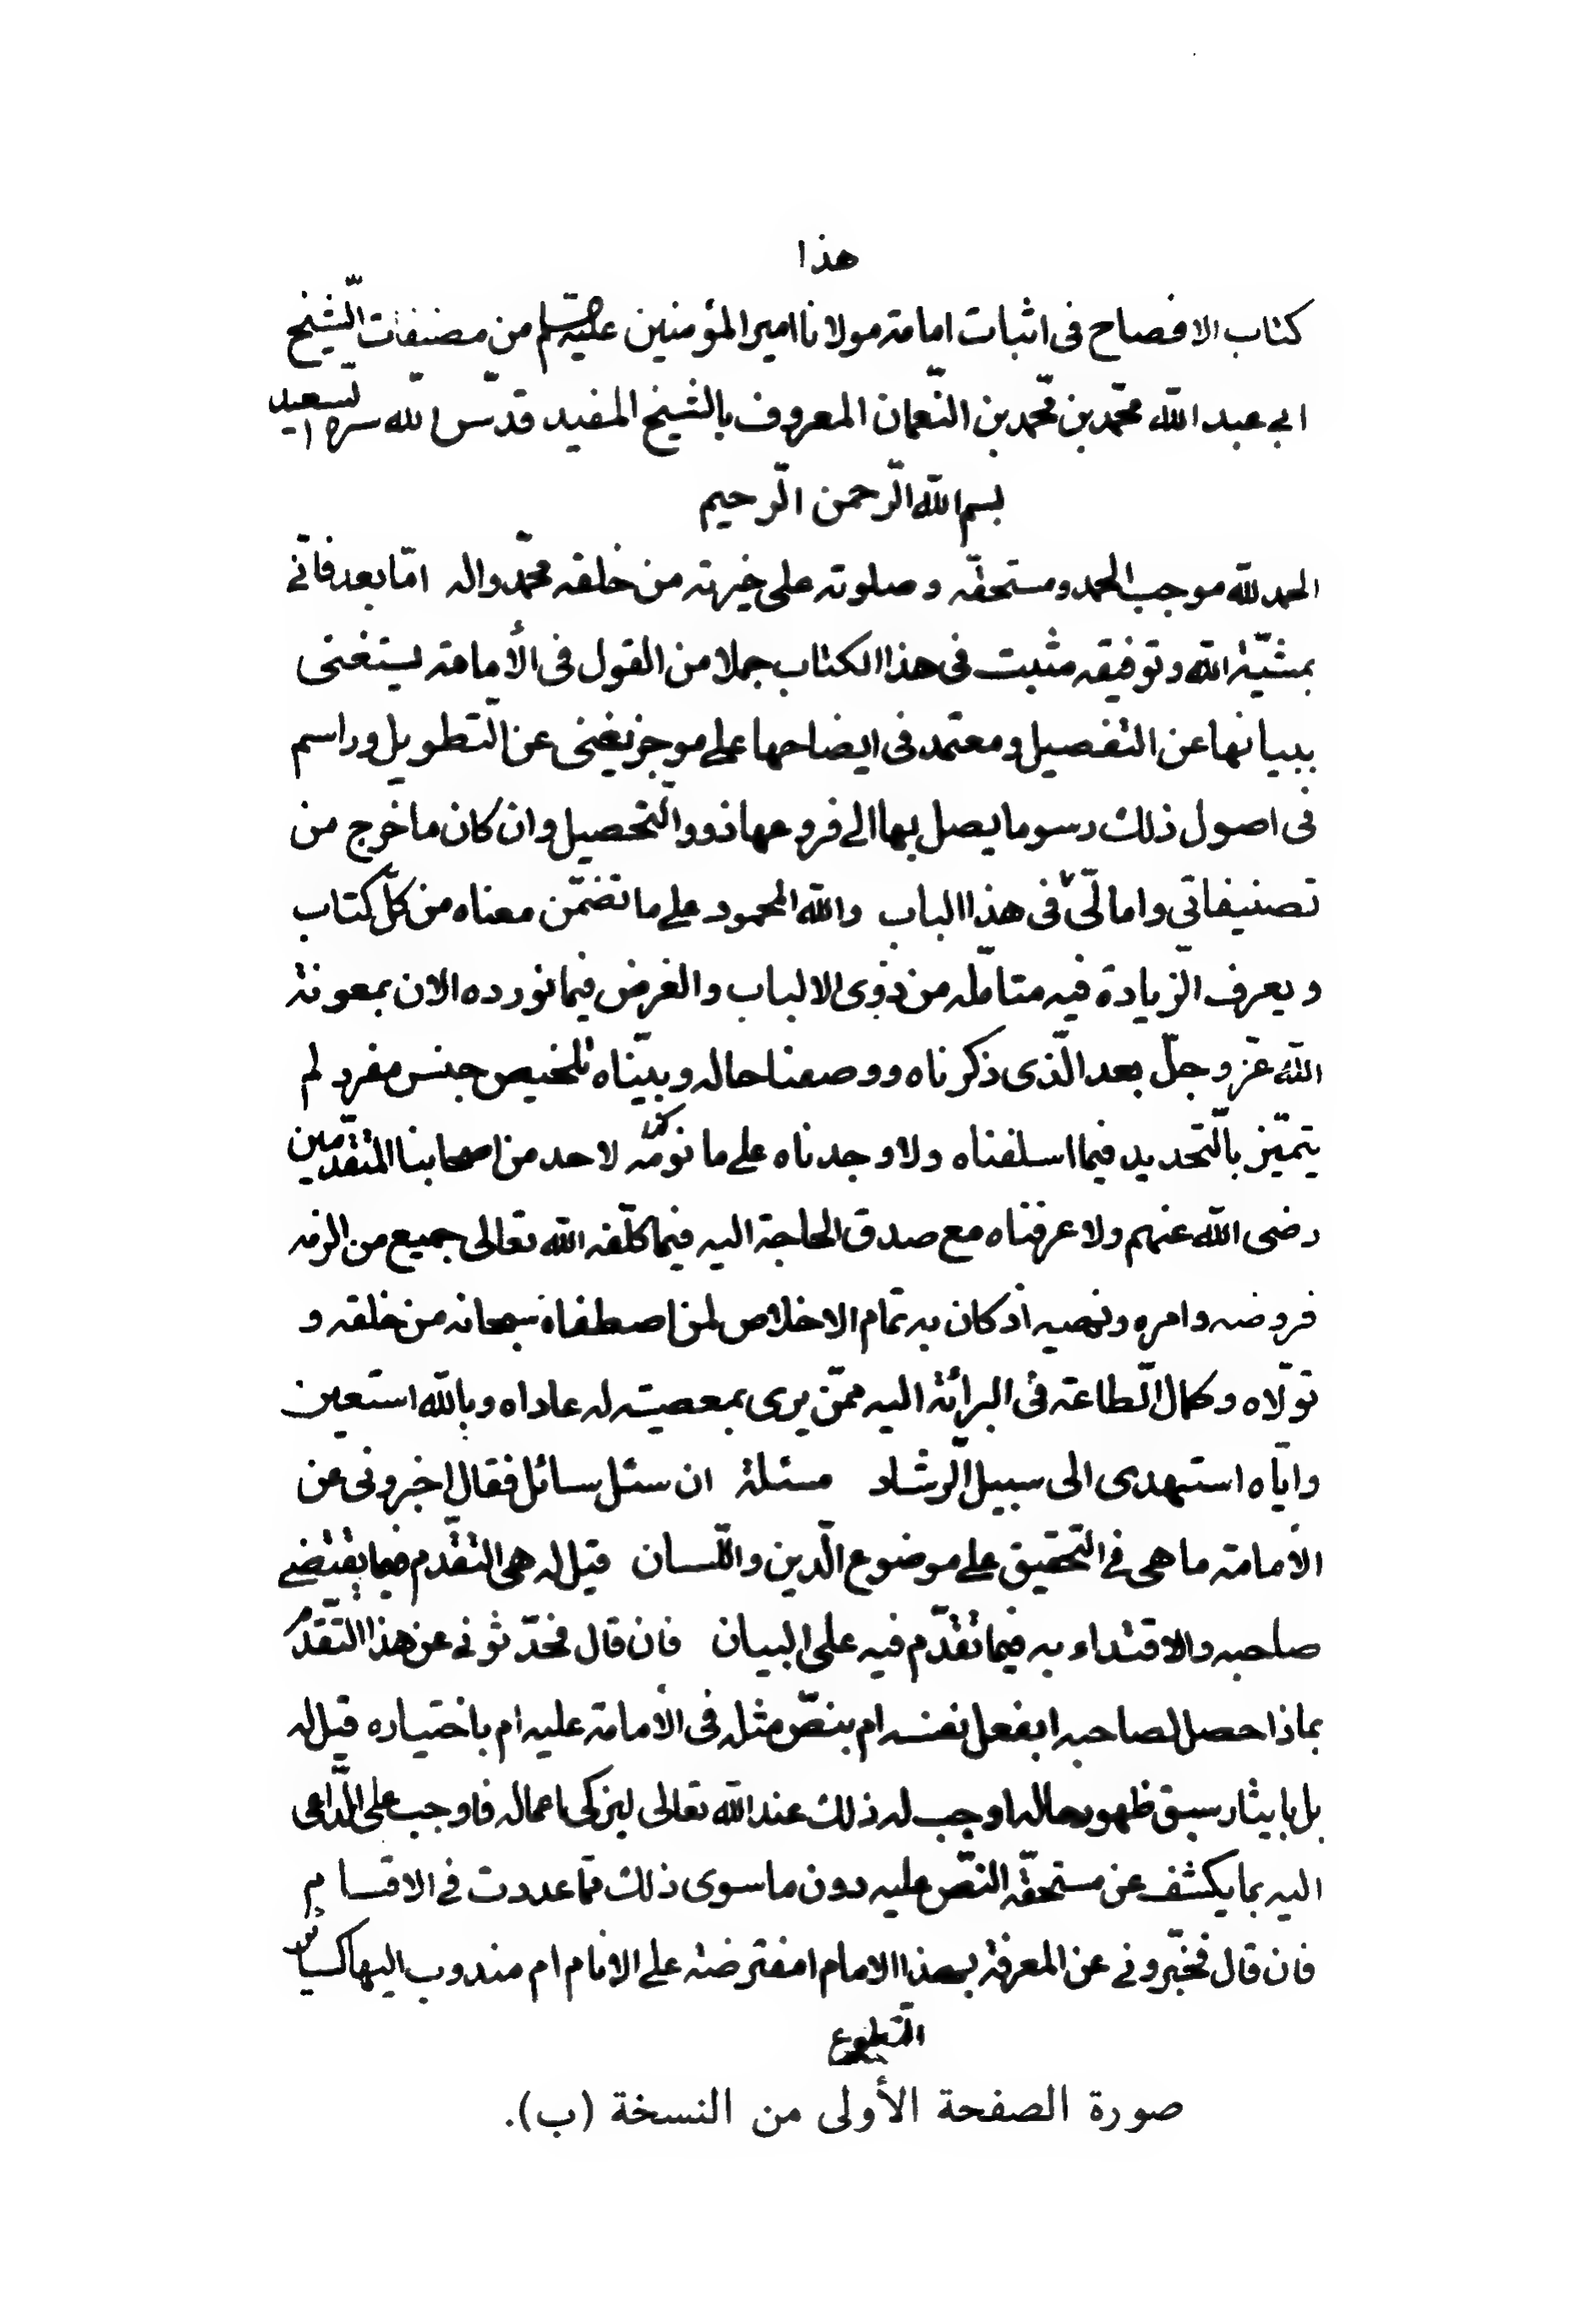 هذا
كتاب الافصاح فى اثبات امامة مولانا امير المؤمنين عليه من مصنفات الشيخ
ابى عبد الله محمّد بن محمّد بن النّعمان المعروف بالشيخ المفيد قدّس الله سره السعيد
بسم الله الرّحمن الرّحيم
الحمد لله موجب الحمد ومستحقّه وصلوته على خيرته من خلقه محمّد واله امّا بعد فانّى
بمشيّة الله وتوفيقه مثبت فى هذا الكتاب جملا من القول فى الأمامة يستغنى
ببيانها عن التفصيل ومعتمد فى ايضاحها على موجز يغنى عن التطويل وراسم
فى اصول ذلك رسوما يصل بها الى فروعها ذووا التّحصيل وان كان ما خرج من
تصنيفاتى وامالىّ فى هذا الباب والله المحمود على ما تضمّن معناه من كلّ كتاب
ويعرف الزّيادة فيه متامّله من ذوى الالباب والغرض فيما نورده الان بمعونة
الله عزّ وجلّ بعد الّذى ذكرناه ووصفنا حاله وبيّناه تلخيص جنس مفرد لم
يتميّز بالتّحديد فيما اسلفناه ولا وجدناه على ما نومّه لاحد من اصحابنا المتقدّمين
رضى الله عنهم ولا عرفناه مع صدق الحاجة اليه فيما كلّفه الله تعالى جميع من الزمه
فروضه وامره ونهيه اذ كان به تمام الاخلاص لمن اصطفاه سبحانه من خلقه و
تولّاه وكمال الطّاعة فى البرائة اليه ممّن يرى بمعصيته له عاداه وبالله استعين
وايّاه استهدى الى سبيل الرّشاد مسئلة ان سئل سائل فقال اخبرونى عن
الأمامة ما هى فى التّحقيق على موضوع الدّين واللّسان قيل له هى التقدّم فيما يقتضى
صاحبه والاقتداء به فيما تقدّم فيه على البيان فان قال فحدّثونى عن هذا التقدّم
بماذا حصل لصاحبه ابفعل نفسه ام بنصّ مثله فى الأمامة عليه ام باختياره قيل له
بل بايثار سبق ظهور حاله اوجب له ذلك عند الله تعالى ليزكى اعماله فاوجب على الدّاعى
اليه بما يكشف عن مستحقّه النّصّ عليه دون ما سوى ذلك ممّا عددت فى الاقسام
فان قال فخبّرونى عن المعرفة بهذا الامام امفترضة على الانام ام مندوب اليها كسائر
التّطوع
صورة الصفحة الأولى من النسخة (ب).